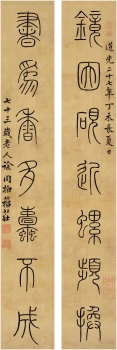 鏡因硯近螺頻換
道光二十七年丁未長夏
書為香多蠹不成
七十三歲老人徐同柏籀莊